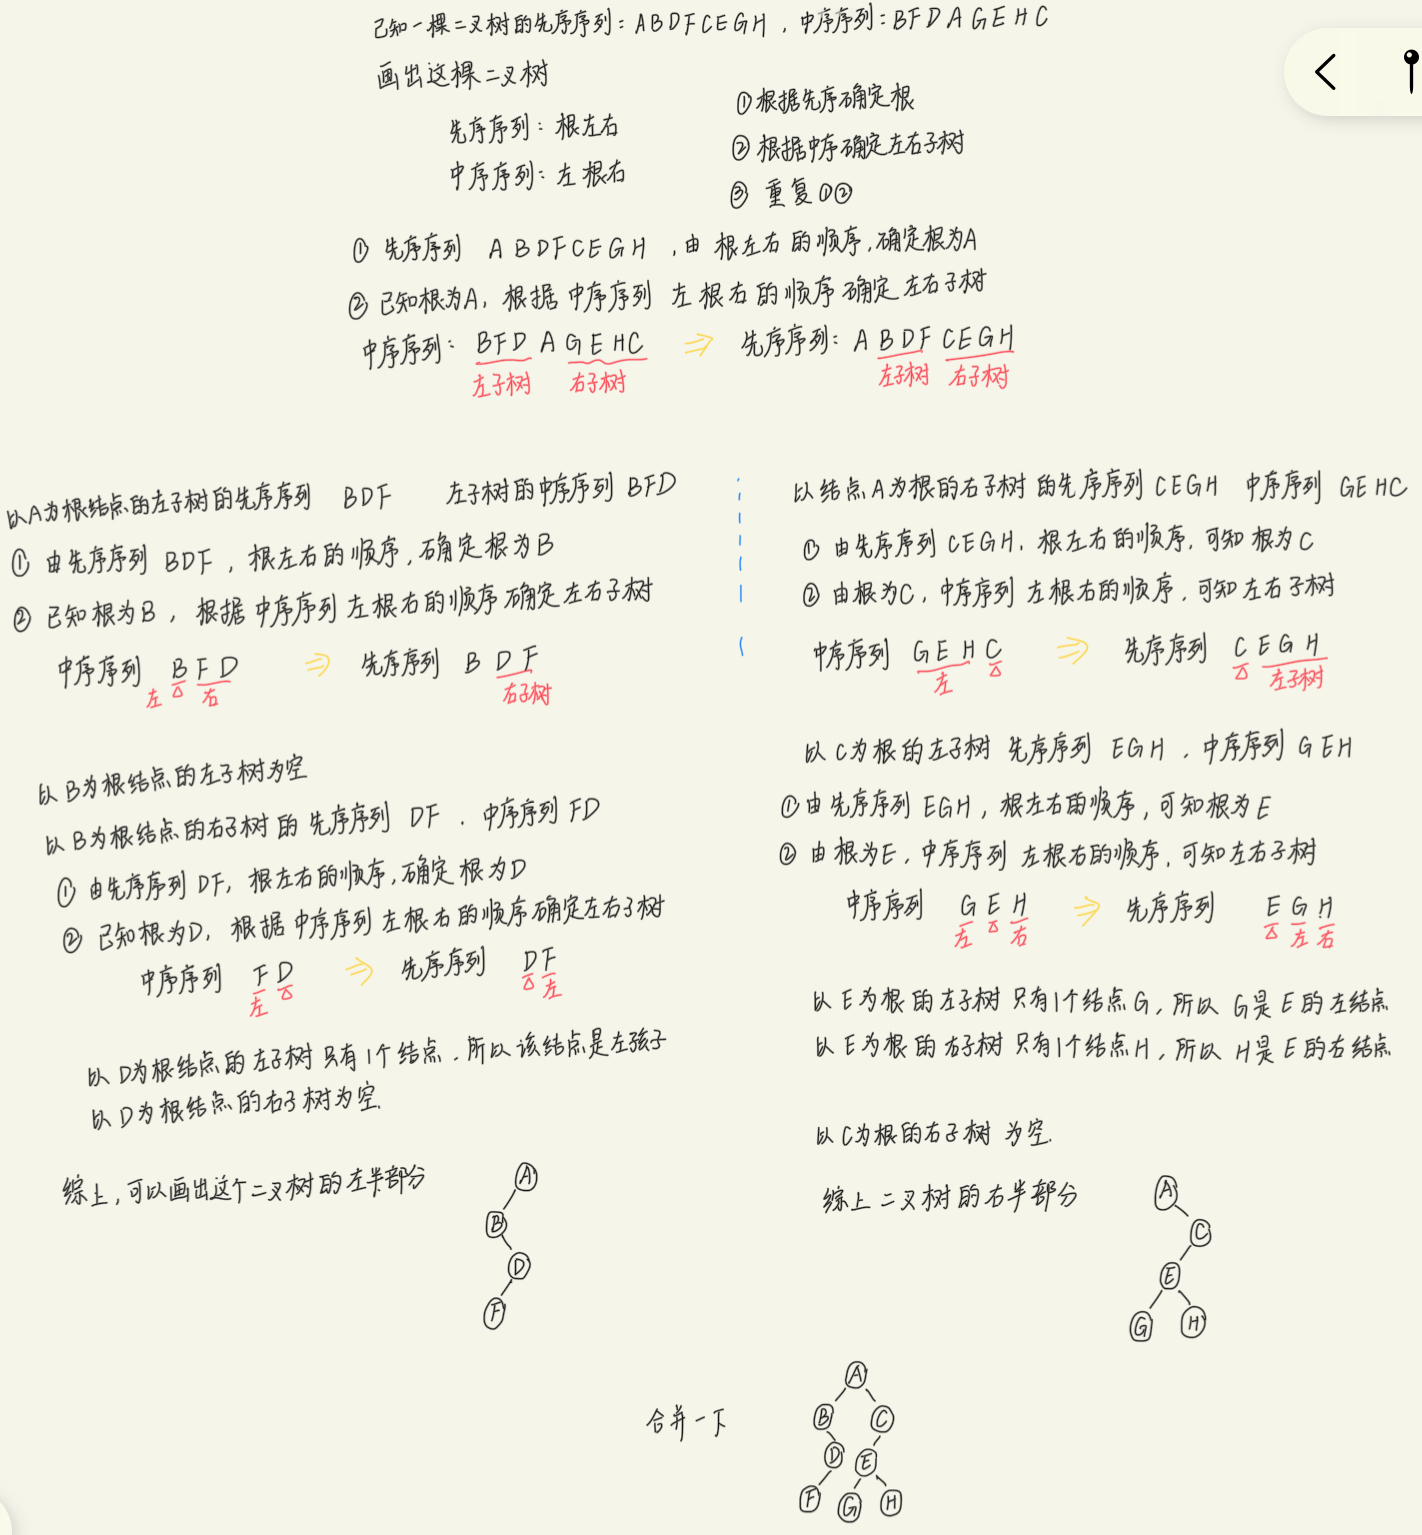 已知一棵二叉树的先序序列：ABDFCEGH，中序序列：BFDAGEHC
画出这棵二叉树
先序序列：根左右
中序序列：左根右
①根据先序确定根
②根据中序确定左右子树
③ 重复①②
① 先序序列 ABDFCEGH，由 根左右 的顺序，确定根为A
② 已知根为A，根据 中序序列 左根右的顺序确定左右子树
中序序列： BFD A GEHC ⇒ 先序序列：A BDF CEGH
左子树 右子树 左子树 右子树
以A为根结点的左子树的先序序列 BDF 左子树的中序序列 BFD
① 由先序序列 BDF，根左右的顺序，确定根为B
② 已知根为B，根据 中序序列 左根右的顺序确定左右子树
中序序列 BFD ⇒ 先序序列 B DF
左 △ 右 右子树
以B为根结点的左子树为空
以B为根结点的右子树的 先序序列 DF．中序序列 FD
① 由先序序列 DF，根左右的顺序，确定根为D
② 已知根为D，根据 中序序列 左根右的顺序确定左右子树
中序序列 FD ⇒ 先序序列 DF
左 △ △ 左
以D为根结点的左子树只有1个结点．所以该结点是左孩子
以D为根结点的右子树为空．
综上，可以画出这个二叉树的左半部分
A
B
D
F
以结点A为根的右子树的先序序列 CEGH 中序序列 GEHC
① 由先序序列 CEGH．根左右的顺序．可知根为C
② 由根为C．中序序列 左根右的顺序，可知左右子树
中序序列 GEHC ⇒ 先序序列 CEGH
左 △ △ 左子树
以C为根的左子树 先序序列 EGH．中序序列 GEH
①由先序序列 EGH，根左右的顺序，可知根为E
② 由根为E．中序序列 左根右的顺序，可知左右子树
中序序列 G E H ⇒ 先序序列 E G H
左 △ 右 △ 左 右
以E为根的左子树只有1个结点G，所以 G是E的左结点
以E为根的右子树只有1个结点H，所以 H是E的右结点
以C为根的右子树 为空．
综上 二叉树的右半部分
A
C
E
G H
合并一下
A
B C
D E
F G H